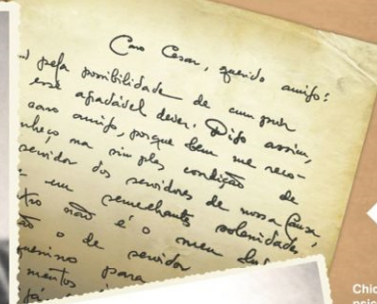 Caro Cesar, querido amigo:
pela possibilidade de cumprir
esse agradável dever. Digo assim,
caro amigo, porque bem me reco-
nheço na simples condição de
servidor dos servidores de nossa Causa,
em semelhante solenidade,
não é o meu
o de servidor
para
mentos
Chic
psic